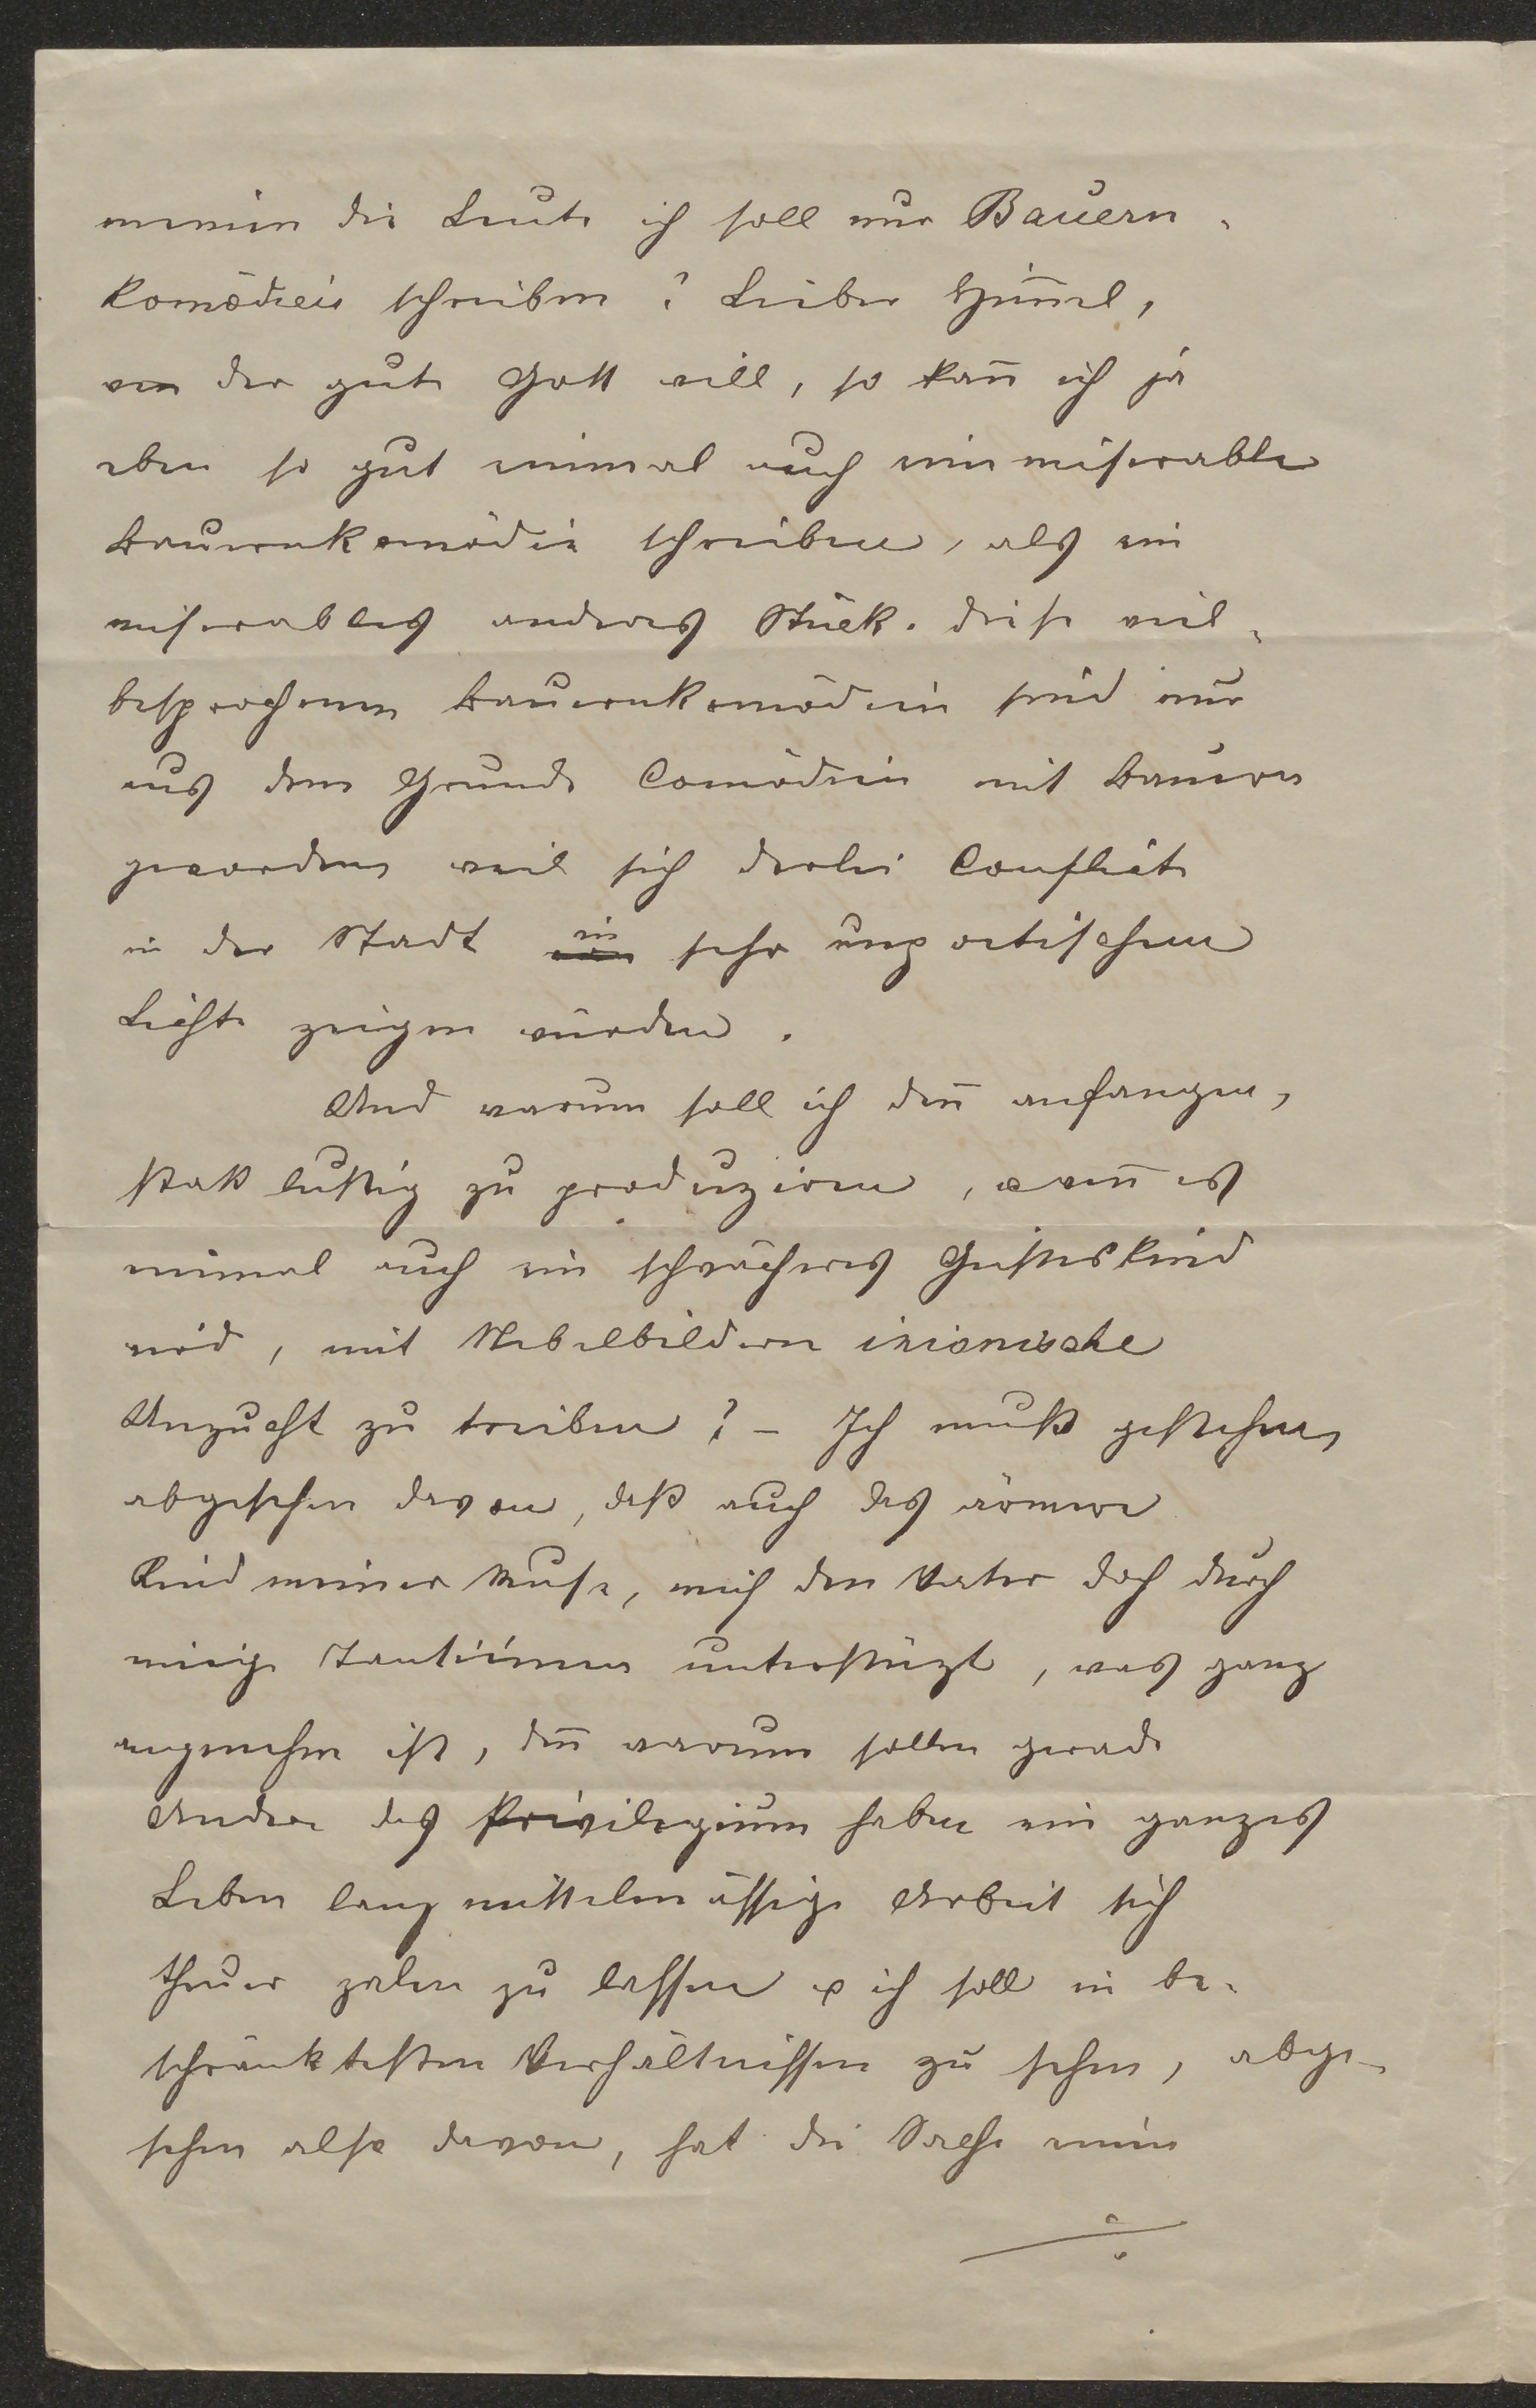 meinen die Leute ich soll nur Bauern-
komödien schreiben? Lieber Him̄el,
wen der gute Gott will, so kan̄ ich ja
eben so gut einmal auch eine miserable
Bauernkomödie schreiben, als ein
miserables anderes Stück. Diese viel-
besprochenen Bauernkomödien sind nur
aus dem Grunde Comödien mit Bauern
geworden, weil sich derlei Conflicte
in der Stadt in sehr unpoetischem
Lichte zeigen würden.
Und warum soll ich den̄ anfangen,
statt lustig zu produziren, wen̄ es
einmal auch ein schwächeres Geisteskind
wird, mit Nebelbildern ixionische
Unzucht zu treiben? – Ich muß gestehen,
abgesehen davon, daß auch das ärmere
Kind meiner Muse, mich den Vater doch durch
einige Tantièmen unterstüzt, was ganz
angenehm ist, den̄ warum sollen gerade
Andere das Privilegium haben ein ganzes
Leben lang mittelmässige Arbeit sich
theuer zalen zu lassen & ich soll in be-
schränktesten Verhältnissen zu sehen, abge-
sehen also davon, hat die Sache einen